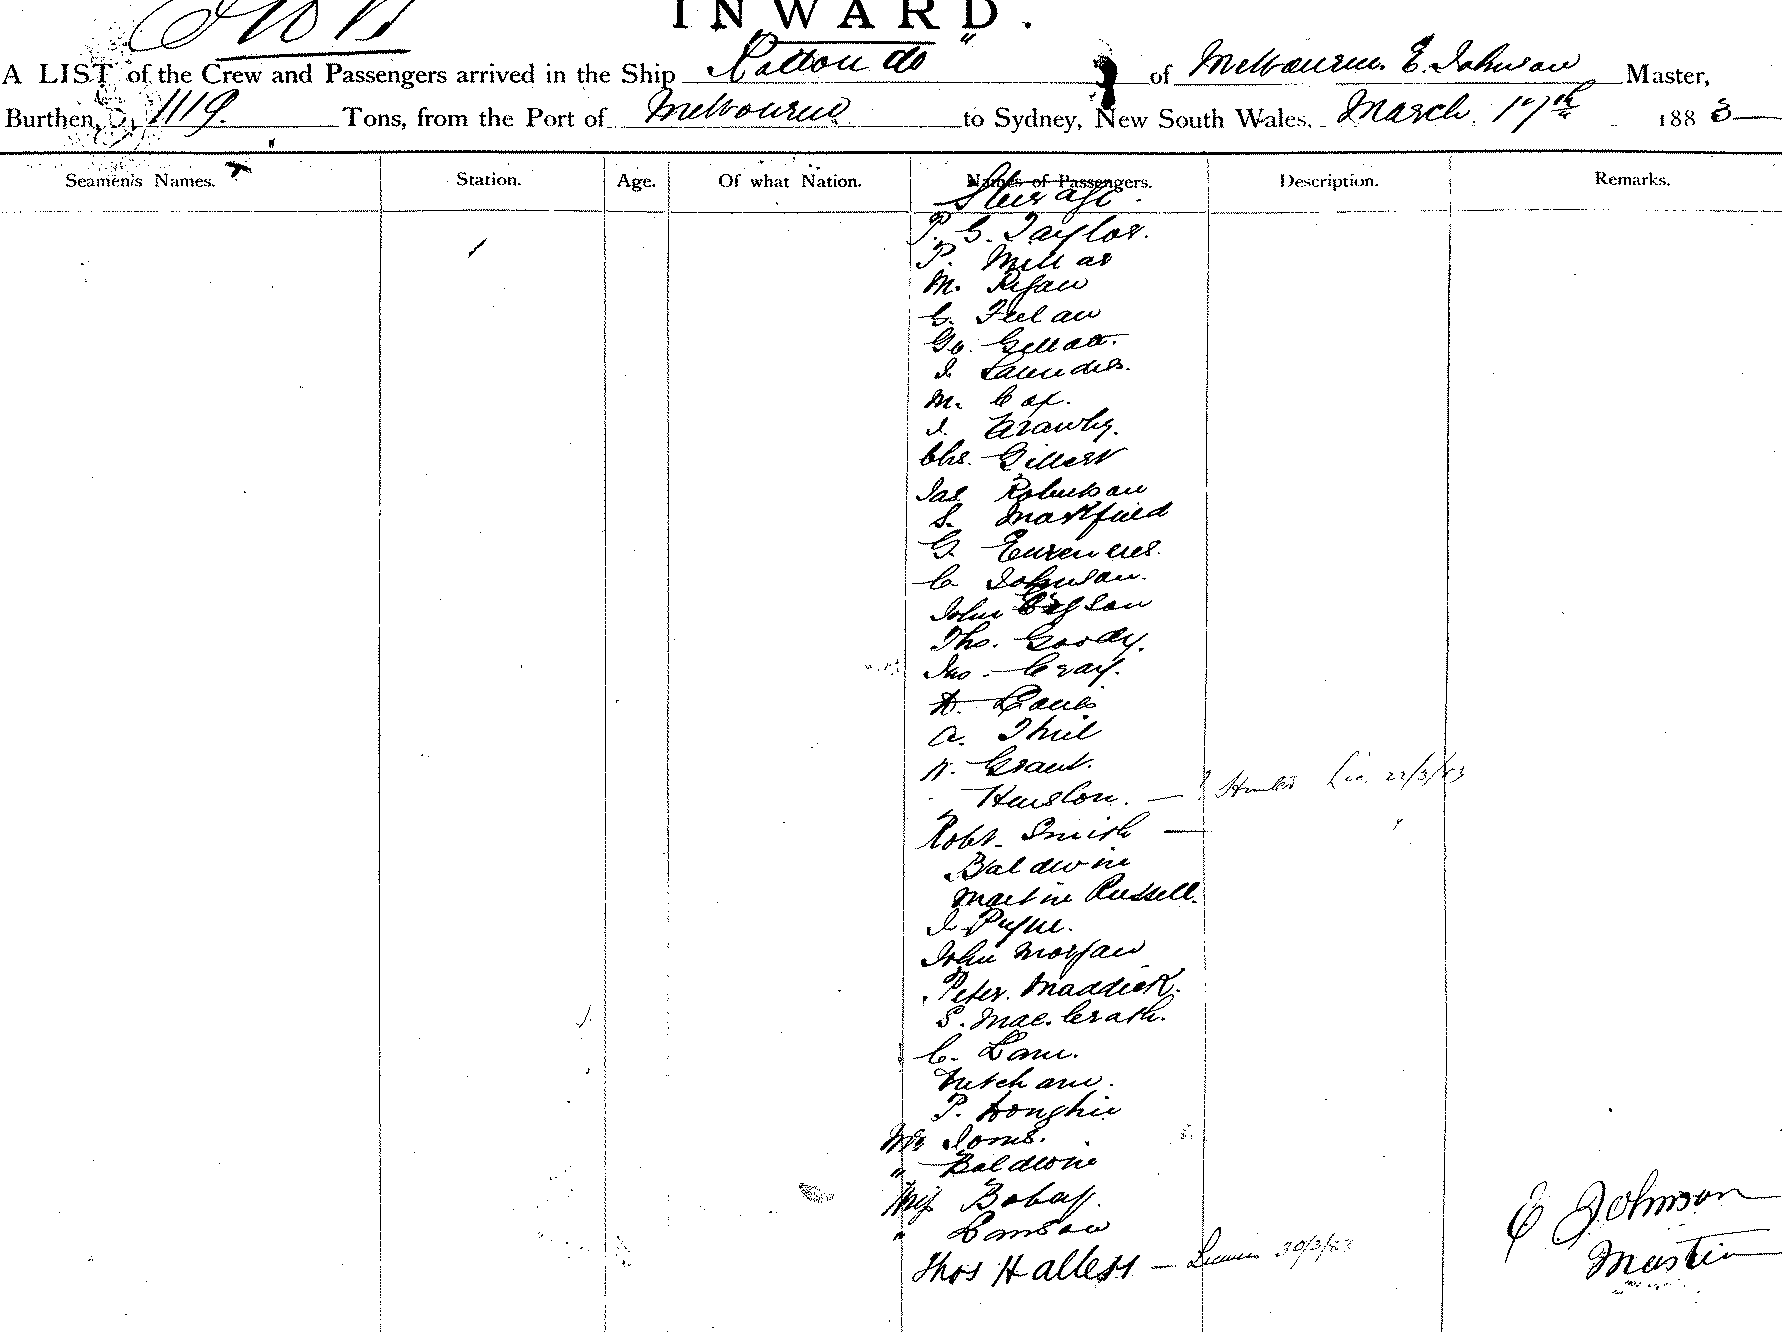 INWARD.
A LIST of the Crew and Passengers arrived in the Ship "Rotomahana" of Melbourne E. Johnson Master,
Burthen, 1119 Tons, from the Port of Melbourne to Sydney, New South Wales, March 17th 1883
Seamen's Names. Station. Age. Of what Nation. Names of Passengers. Description. Remarks.
Steerage.
P. G. Taylor.
P. Millar
M. Ryan
C. Feelan
Geo. Gillatt.
J. Saunders.
M. Cox.
J.
Chs. Gillert
Jas Robertson
S. Markfield
G.
C. Johnson.
John
Tho. Goody.
Jno. Cray.
A. Davis
A. Thiel
W. Grant.
Huston.
Robt. Smith
Baldwin
Martin Russell.
J. Payne.
John Morgan
Peter. Maddick.
S. MacCrath.
C. Lane.
Mitcham.
P.
Mrs Jones.
" Baldwin
Miss
" Lamson
Thos Halless 30/3/83
E Johnson
Master